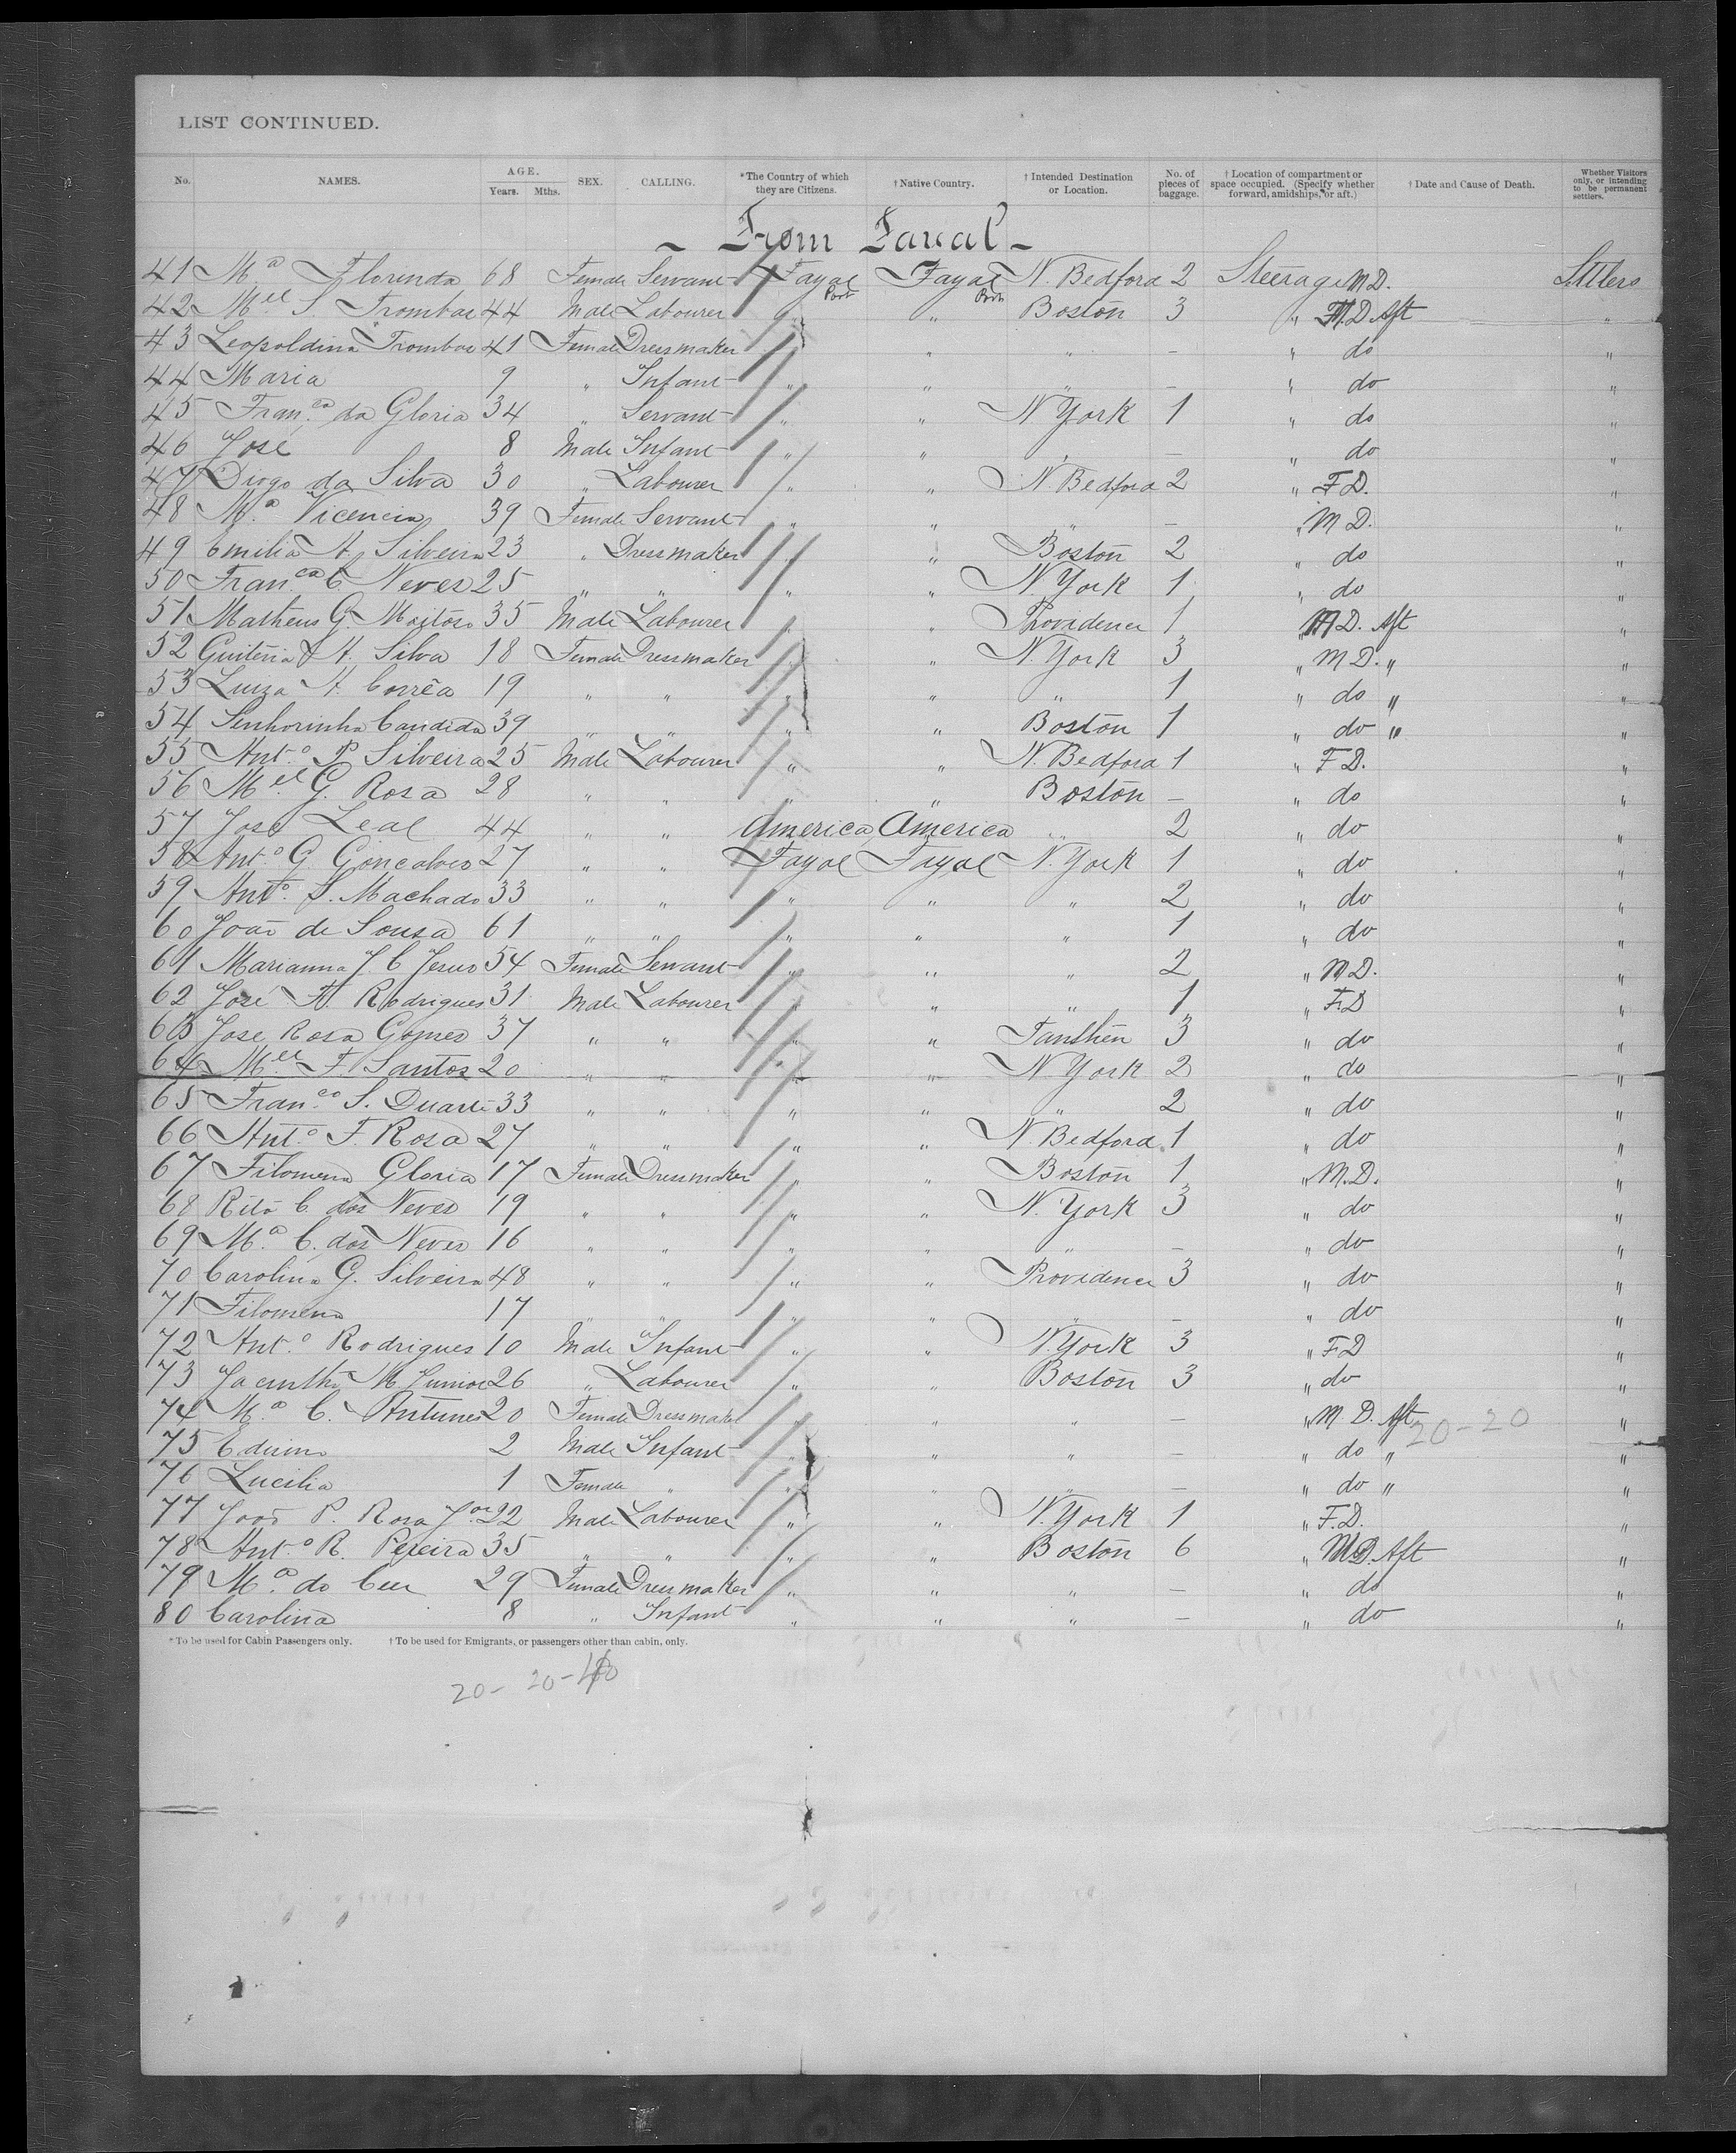 LIST CONTINUED.
No. NAMES. AGE. Years. Mths. SEX. CALLING. *The Country of which they are Citizens. †Native Country. †Intended Destination or Location. No. of pieces of baggage. †Location of compartment or space occupied. (Specify whether forward, amidships, or aft.) †Date and Cause of Death. Whether Visitors only, or intending to be permanent settlers.
~ From Faical ~
41 Mª Florinda 68 Female Servant Fayal Port Fayal Port N. Bedford 2 Steerage M D. Settlers
42 Mel S. Trombae 44 Male Labourer " " Boston 3 " M. D. Aft "
43 Leopoldina Trombae 41 Female Dressmaker " " " — " do "
44 Maria 9 " Infant " " " — " do "
45 Fran.ca da Gloria 34 " Servant " " N. York 1 " do "
46 José 8 Male Infant " " " — " do "
47 Diogo da Silva 30 " Labourer " " N Bedford 2 " F D. "
48 Mª Vicencia 39 Female Servant " " " — " M D. "
49 Emilia A. Silveira 23 " Dressmaker " " Boston 2 " do "
50 Fran.ca C Neves 25 " " " " N. York 1 " do "
51 Matheus G. Moitoso 35 Male Labourer " " Providence 1 " M D. Aft "
52 Guiteria A. Silva 18 Female Dressmaker " " N. York 3 " M D. " "
53 Luiza A. Corrêa 19 " " " " " 1 " do " "
54 Senhorinha Candida 39 " " " " Boston 1 " do " "
55 Ant.o P Silveira 25 Male Labourer " " N. Bedford 1 " F D. "
56 Mel G. Rosa 28 " " " " Boston — " do "
57 José Leal 44 " " America America " 2 " do "
58 Ant.o G. Goncalves 27 " " Fayal Fayal N. York 1 " do "
59 Ant.o S. Machado 33 " " " " " 2 " do "
60 João de Sousa 61 " " " " " 1 " do "
61 Marianna J. C Jesus 54 Female Servant " " " 2 " M D. "
62 José F. Rodrigues 31 Male Labourer " " " 1 " F. D "
63 Jose Rosa Gomes 37 " " " " 3 " do "
64 Mel F. Santos 20 " " " " N. York 2 " do "
65 Fran.co S. Duarte 33 " " " " " 2 " do "
66 Ant.o F. Rosa 27 " " " " N. Bedford 1 " do "
67 Filomena Gloria 17 Female Dressmaker " " Boston 1 " M. D. "
68 Rita C. dos Neves 19 " " " " N. York 3 " do "
69 Mª C. dos Neves 16 " " " " " — " do "
70 Carolina G. Silveira 48 " " " " Providence 3 " do "
71 Filomena 17 " " " " " — " do "
72 Ant.o Rodrigues 10 Male Infant " " N. York 3 " F D "
73 Jacintho M 26 " Labourer " " Boston 3 " do "
74 Mª C. Antunes 20 Female Dressmaker " " " — " M. D. Aft 20-20 "
75 2 Male Infant " " " — " do " "
76 Lucilia 1 Female " " " " — " do " "
77 João P. Rosa Jor 22 Male Labourer " " N. York 1 " F. D. "
78 Ant.o R. Pereira 35 " " " " Boston 6 " M D. Aft "
79 Mª do Ceu 29 Female Dressmaker " " " — " do "
80 Carolina 8 " Infant " " " — " do "
*To be used for Cabin Passengers only. †To be used for Emigrants, or passengers other than cabin, only.
20- 20-40